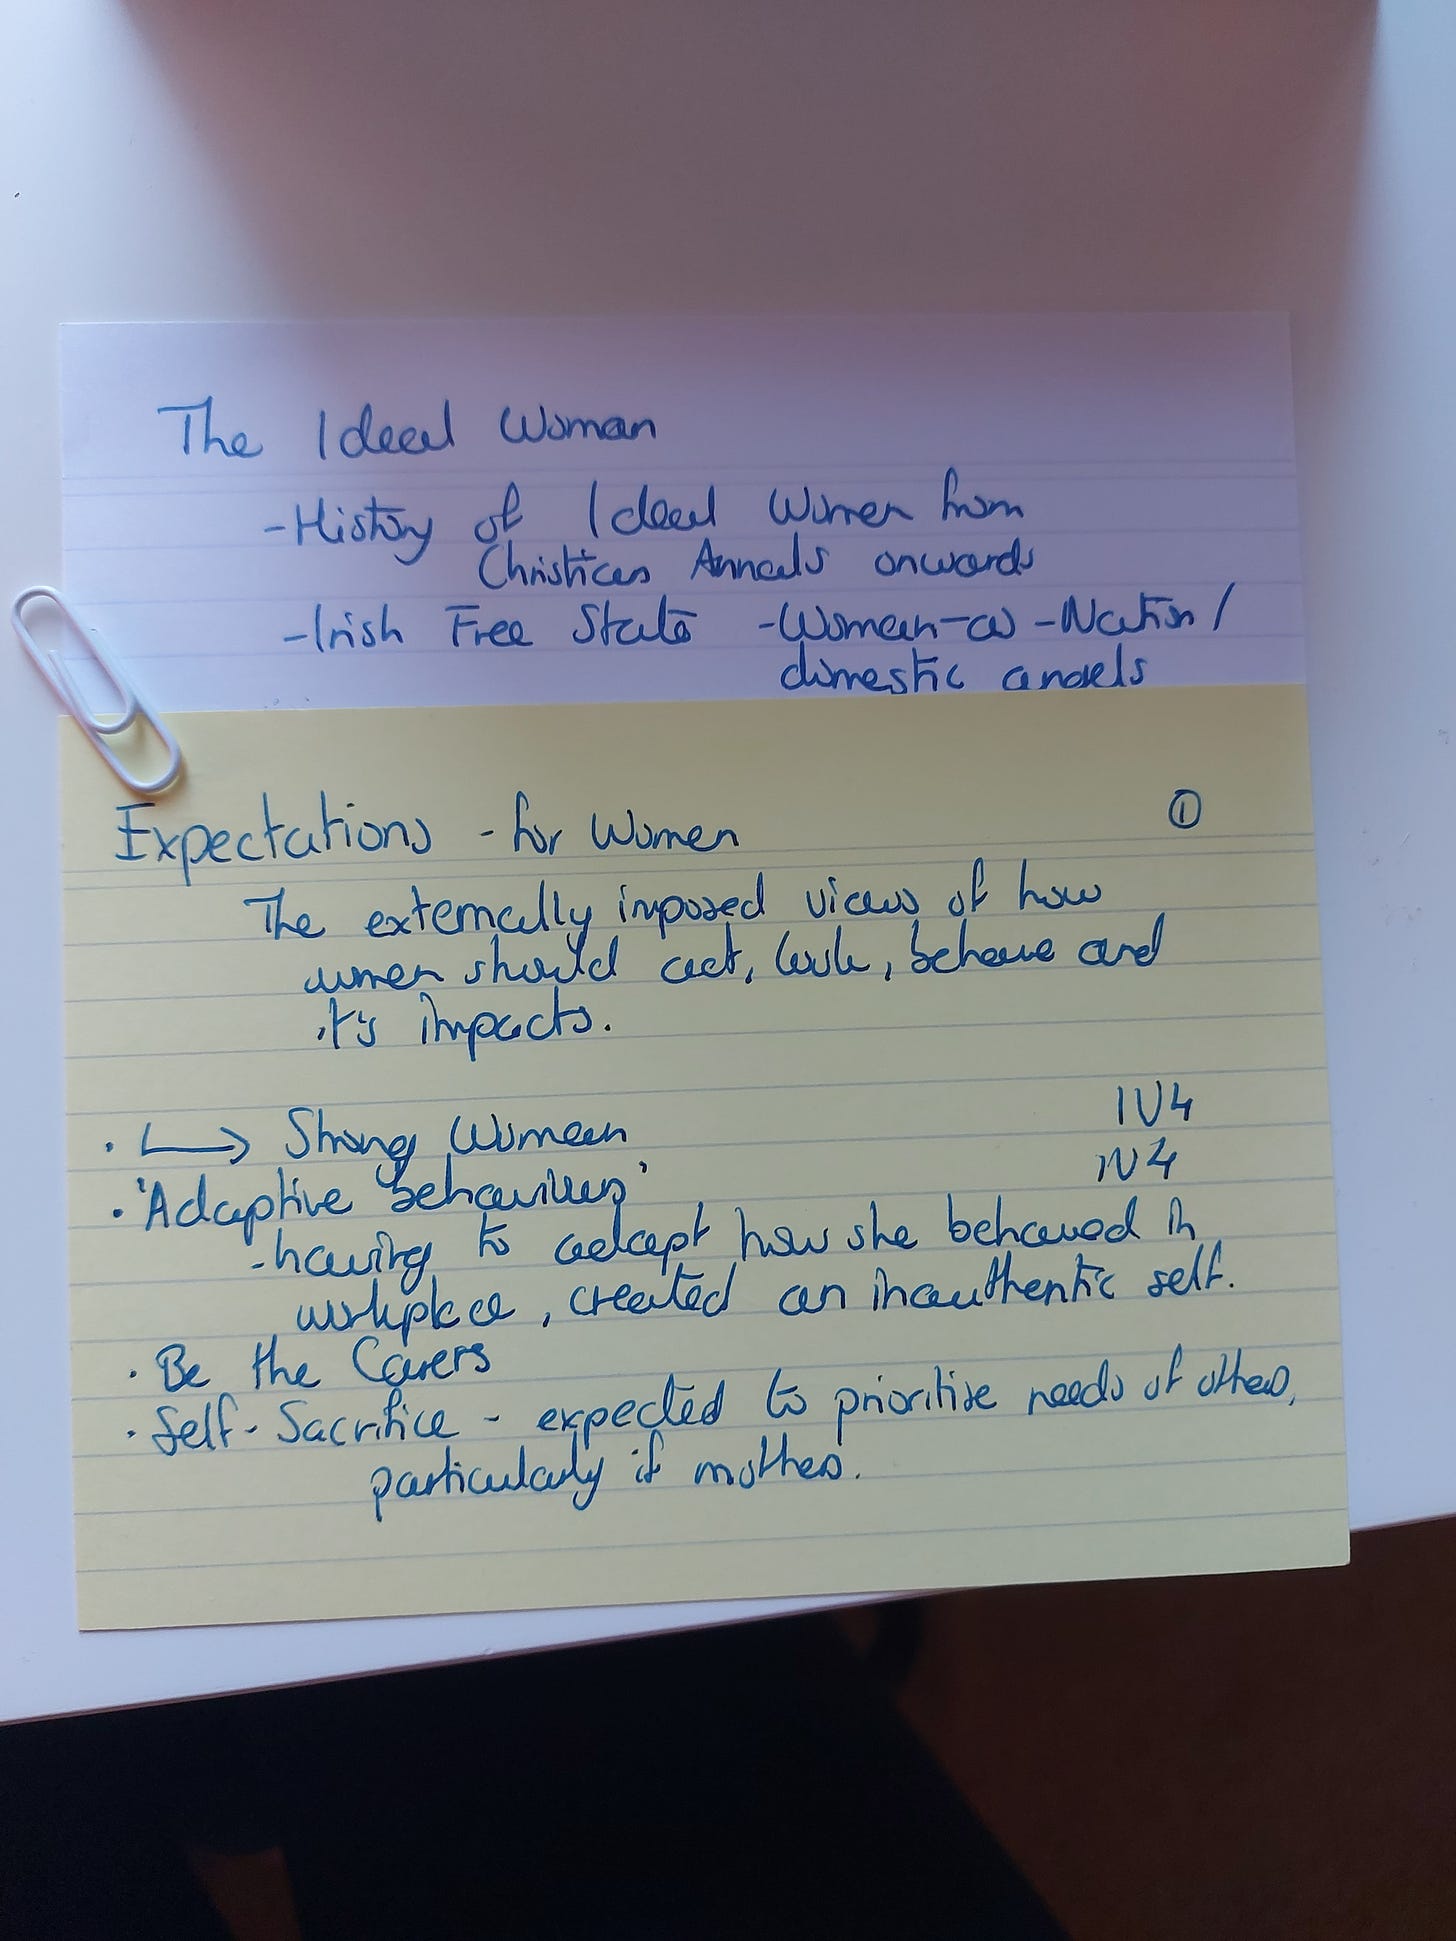 The Ideal Woman
-History of Ideal Women from
Christian Annals onwards
-Irish Free State -Woman-as-Nation/
domestic angels
Expectations - for Women
①
The externally imposed views of how
women should act, look, behave and
it's impacts.
· ↳ Strong Woman IV4
· 'Adaptive Behaviours' IV4
-having to adapt how she behaved in
workplace, created an inauthentic self.
· Be the Carers
· Self-Sacrifice - expected to prioritise needs of others,
particularly if mothers.